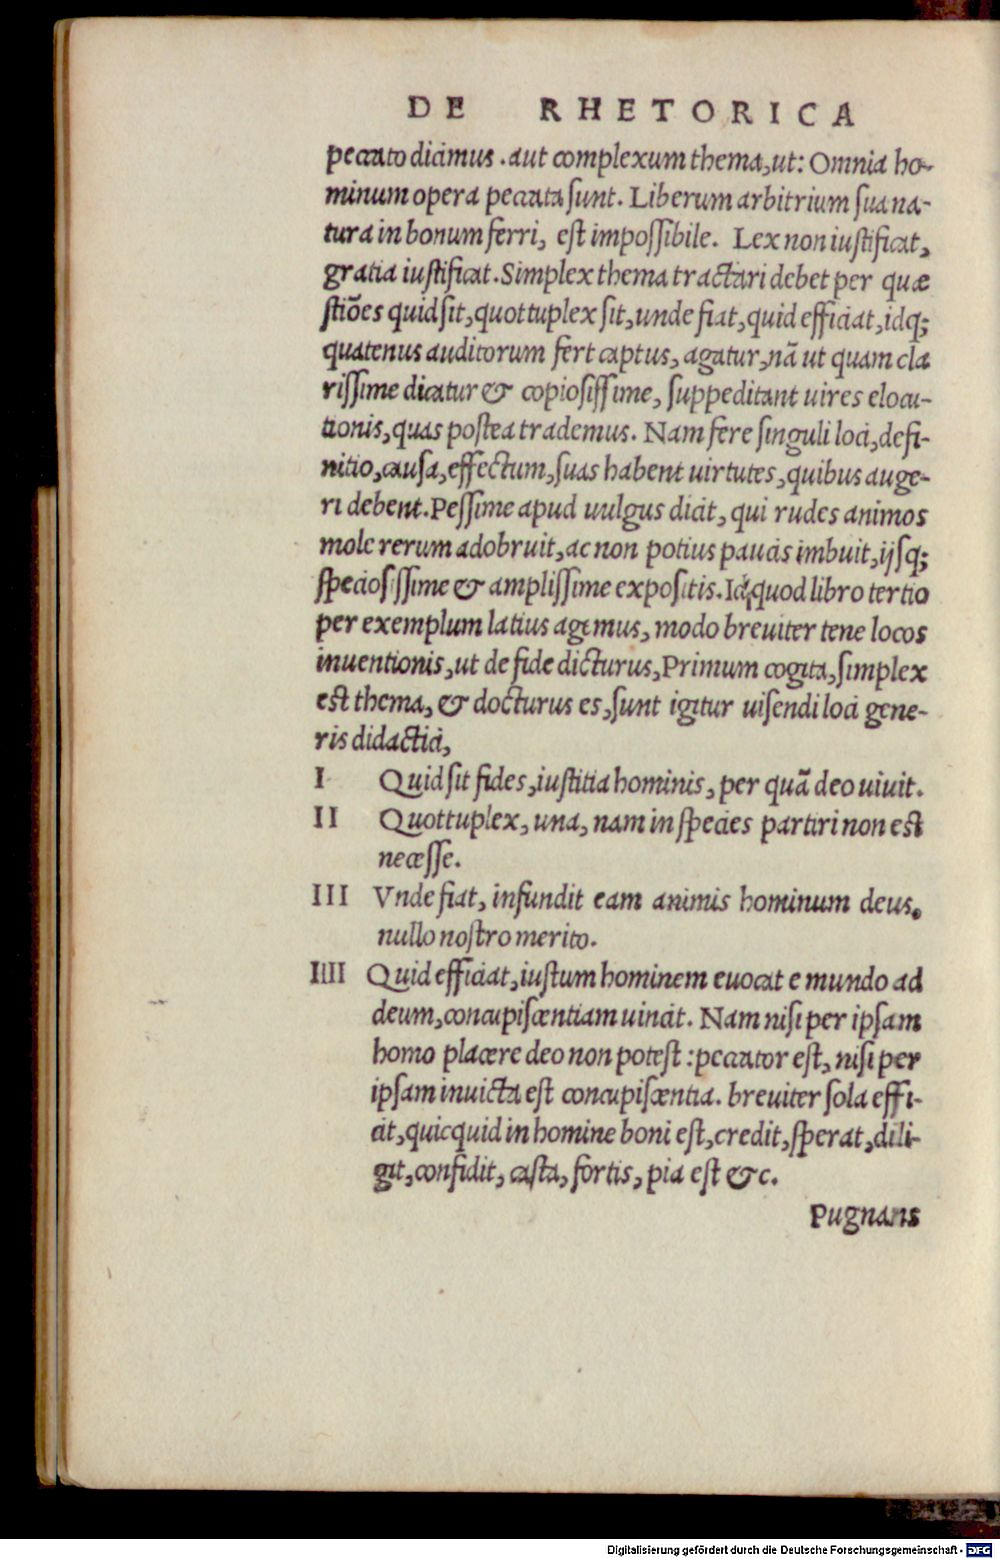 DE RHETORICA
peccato dicimus . aut complexum thema, ut: Omnia ho-
minum opera peccata sunt. Liberum arbitrium sua na-
tura in bonum ferri, est impossibile. Lex non iustificat,
gratia iustificat. Simplex thema tractari debet per quæ
stiões quid sit, quottuplex sit, unde fiat, quid efficiat, idq;
quatenus auditorum fert captus, agatur, nā ut quam cla
rissime dicatur & copiosissime, suppeditant uires elocu-
tionis, quas postea trademus. Nam fere singuli loci, defi-
nitio, causa, effectum, suas habent uirtutes, quibus auge-
ri debent. Pessime apud uulgus dicit, qui rudes animos
mole rerum adobruit, ac non potius paucis imbuit, ijsq;
speciosissime & amplissime expositis. Idq; quod libro tertio
per exemplum latius agemus, modo breuiter tene locos
inuentionis, ut de fide dicturus, Primum cogita, simplex
est thema, & docturus es, sunt igitur uisendi loci gene-
ris didactici,
I Quid sit fides, iustitia hominis, per quā deo uiuit.
II Quottuplex, una, nam in species partiri non est
necesse.
III Vnde fiat, infundit eam animis hominum deus,
nullo nostro merito.
IIII Quid efficiat, iustum hominem euocat e mundo ad
deum, concupiscentiam uincit. Nam nisi per ipsam
homo placere deo non potest : peccator est, nisi per
ipsam inuicta est concupiscentia. breuiter sola effi-
cit, quicquid in homine boni est, credit, sperat, dili-
git, confidit, casta, fortis, pia est &c.
Pugnans
Digitalisierung gefördert durch die Deutsche Forschungsgemeinschaft - DFG